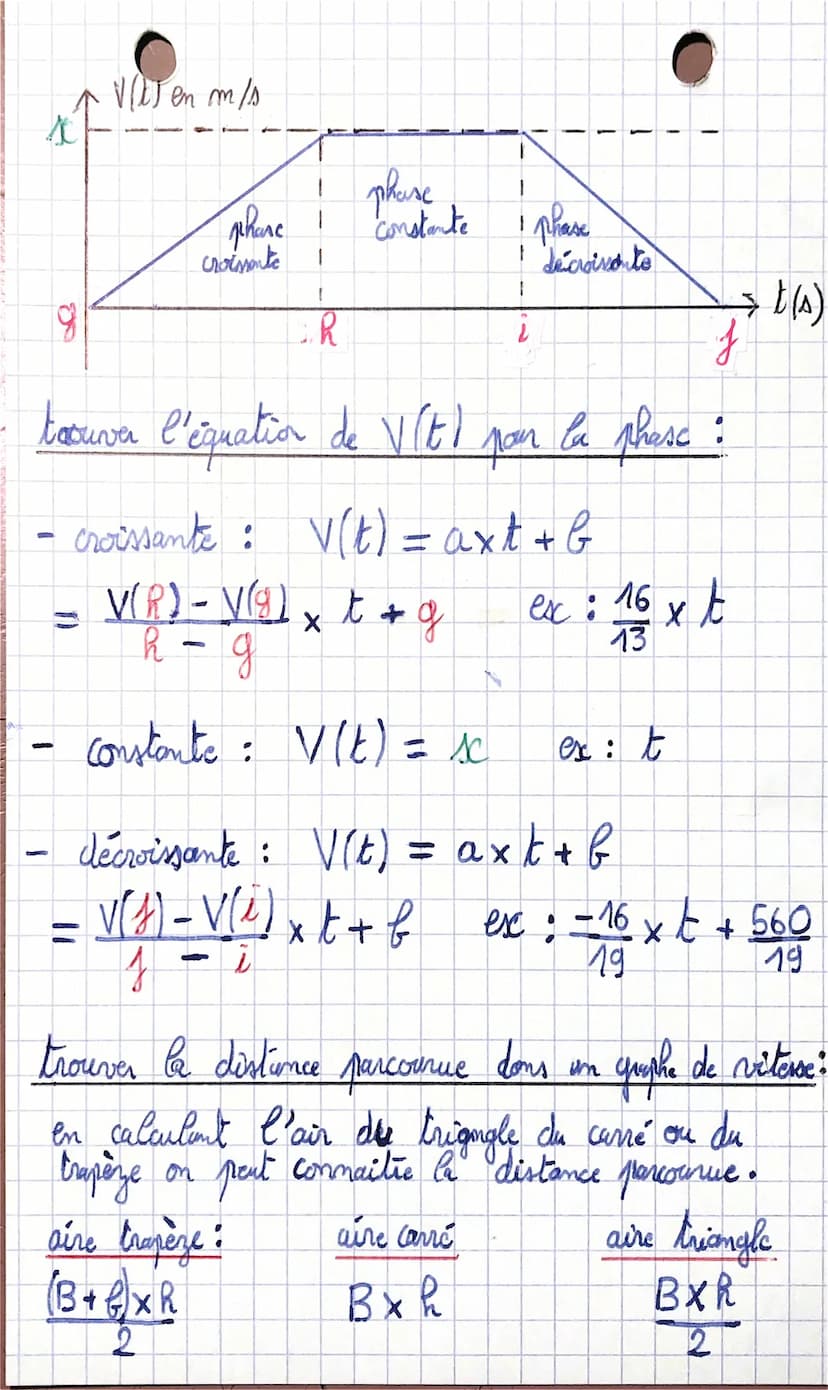 V(t) en m/s
x
phase
croissante
phase
constante
phase
décroissante
t(s)
g
h
i
f
trouver l'équation de V(t) pour la phase :
- croissante : V(t) = a x t + b
= V(h) - V(g) / h - g x t + g ex : 16/13 x t
- constante : V(t) = x ex : t
- décroissante : V(t) = a x t + b
= V(f) - V(i) / f - i x t + b ex : -16/19 x t + 560/19
trouver la distance parcourue dans un graphe de vitesse :
en calculant l'air du triangle du carré ou du
trapèze on peut connaitre la distance parcourue.
aire trapèze : aire carré aire triangle
(B + b) x h / 2 B x h B x h / 2